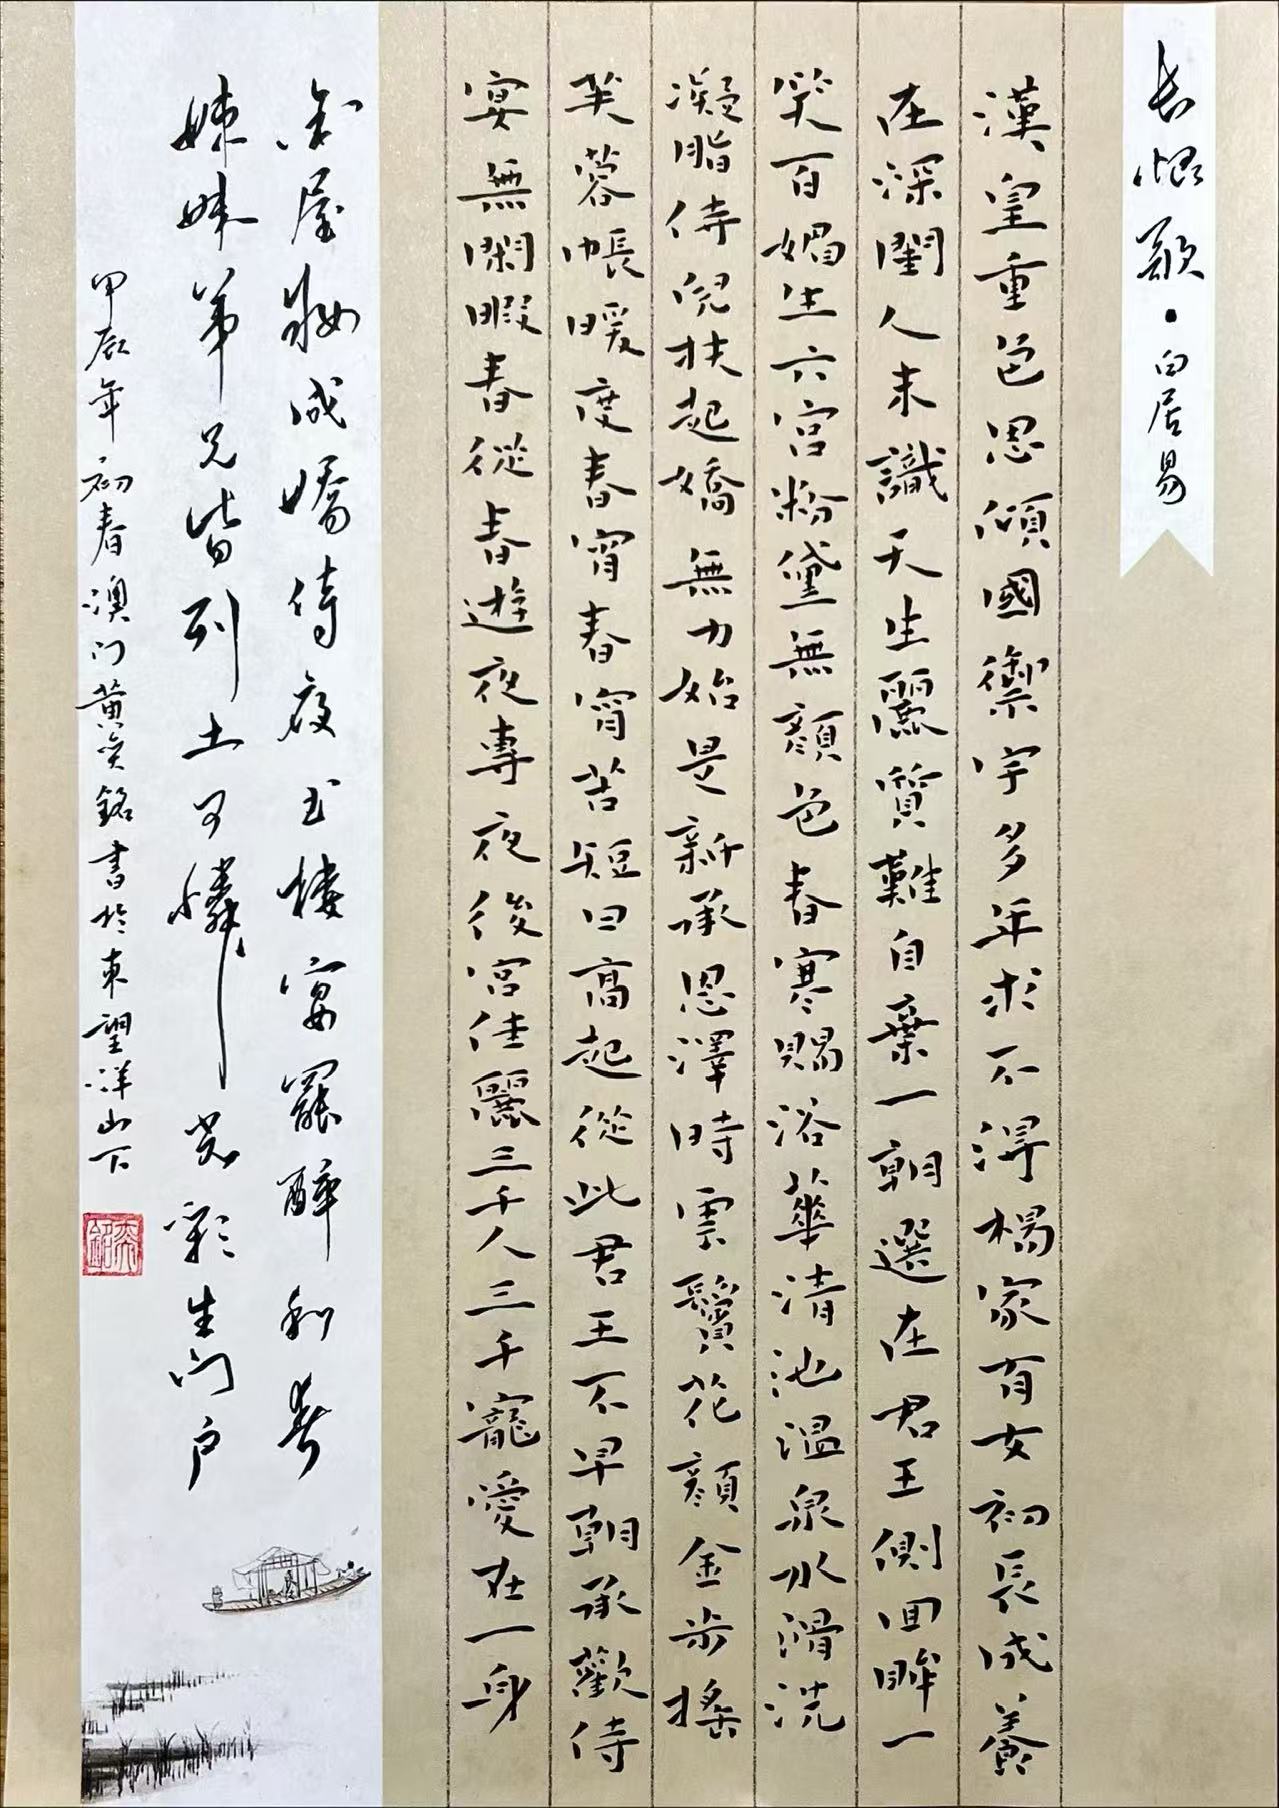 长恨歌·白居易
漢皇重色思傾國御宇多年求不得楊家有女初長成養
在深閨人未識天生麗質難自棄一朝選在君王側回眸一
笑百媚生六宮粉黛無顏色春寒賜浴華清池溫泉水滑洗
凝脂侍兒扶起嬌無力始是新承恩澤時雲鬢花顏金步搖
芙蓉帳暖度春宵春宵苦短日高起從此君王不早朝承歡侍
宴無閑暇春從春遊夜專夜後宮佳麗三千人三千寵愛在一身
金屋妝成嬌侍夜玉樓宴罷醉和春
姊妹弟兄皆列土可憐光彩生门户
甲辰年初春澳门黄奕銘書於東望洋山下
奕銘